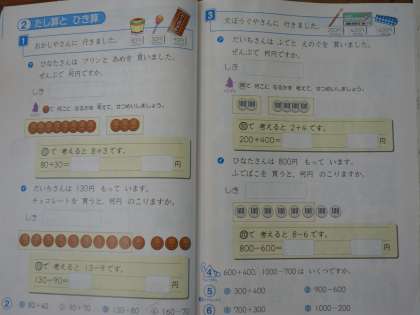 2 たし算と ひき算
1 おかしやさんに 行きました。
ひなたさんは プリンと あめを 買いました。
ぜんぶで 何円ですか。
しき
⑩で 何こに なるかを 考えて、せつめいしましょう。
⑩で 考えると 8+3です。
80+30= 円
だいちさんは 130円 もって います。
チョコレートを 買うと、何円 のこりますか。
しき
⑩で 考えると 13-9です。
130-90= 円
2
3 文ぼうぐやさんに 行きました。
だいちさんは ふでと えのぐを 買いました。
ぜんぶで 何円ですか。
しき
何こに なるかを 考えて、せつめいしましょう。
で 考えると 2+4です。
200+400= 円
ひなたさんは 800円 もって います。
ふでばこを 買うと、何円 のこりますか。
しき
で 考えると 8-6です。
800-600= 円
4 600+400、1000-700は いくつですか。
5 300+400 900-600
6 700+300 1000-200